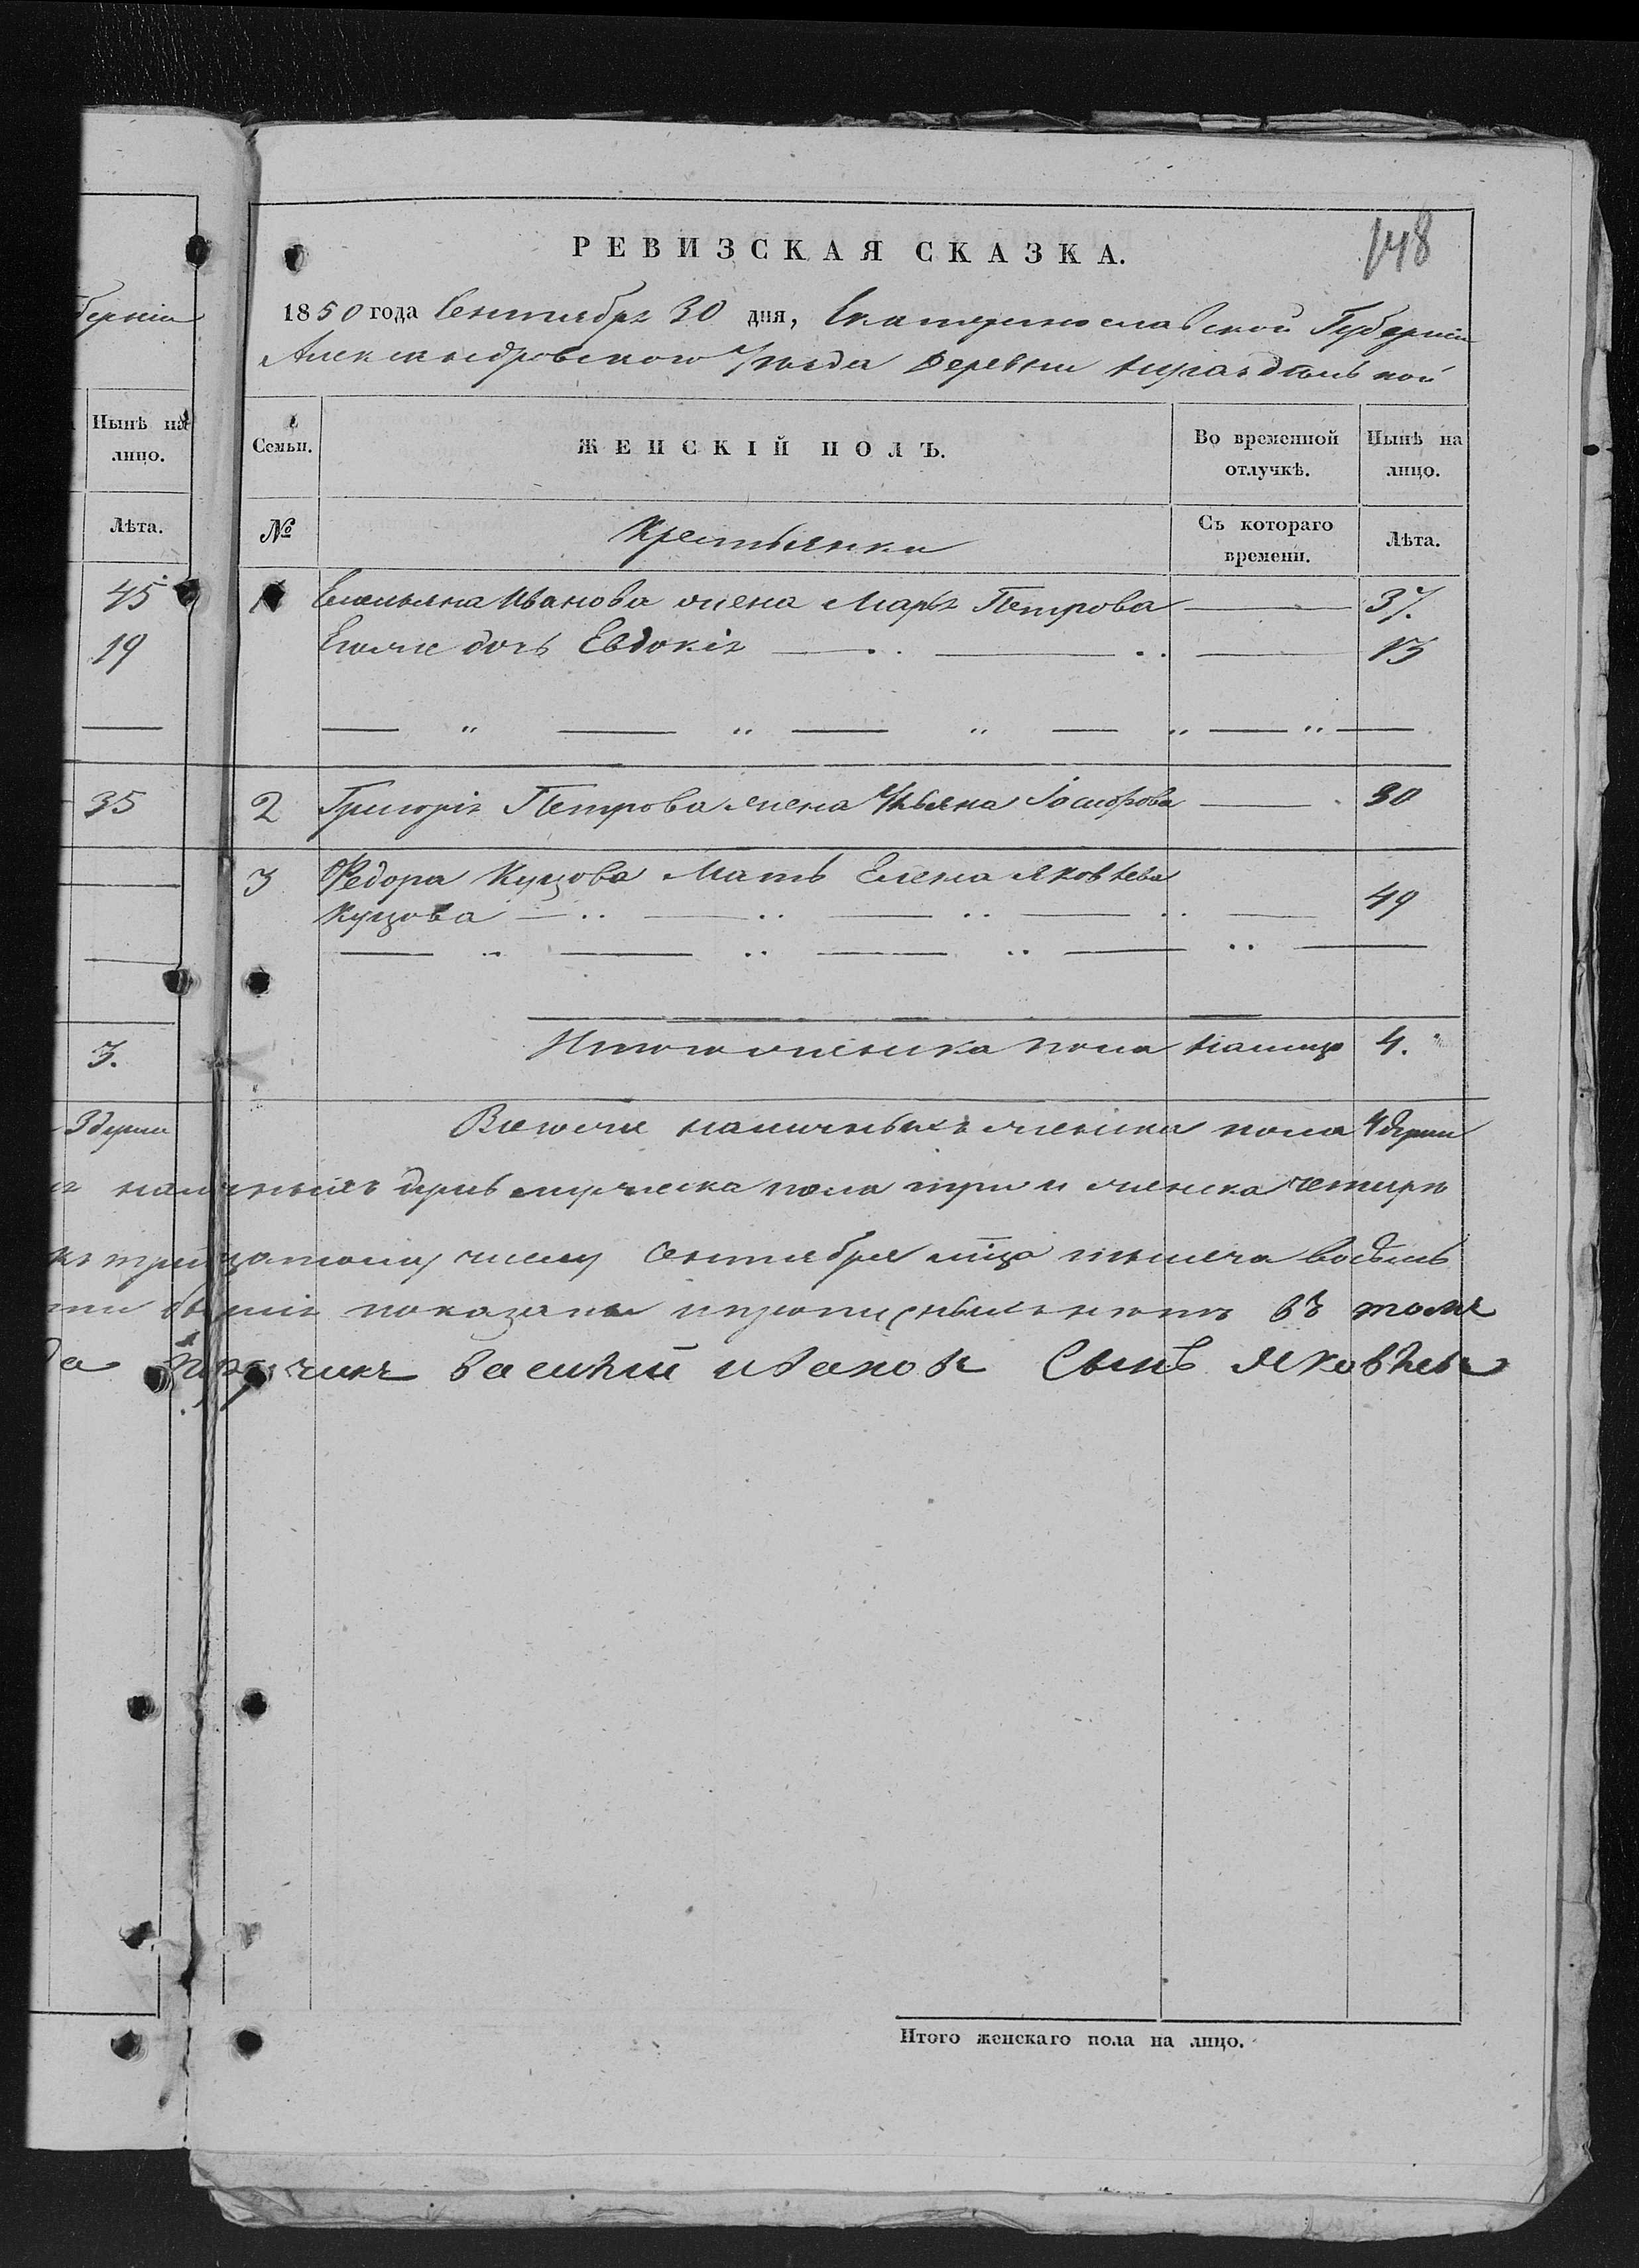 148
РЕВИЗСКАЯ СКАЗКА.
1850 года Сентября 30 дня, Екатеринославской Губерніи
Александровского уѣзда деревни
Семьи.
ЖЕНСКІЙ ПОЛЪ.
Во временной отлучкѣ.
Нынѣ на лицо.
№
Крестьянки
Съ котораго времени.
Лѣта.
1 Емельяна Иванова жена Марья Петрова 37.
Егоже дочь Евдокія 13
2 Григорія Петрова жена Ульяна 30
3 Федора Купцова Мать Елена Яковлева
Купцова 49
Итого женска пола налицо 4.
Всегоже наличныхъ женска пола 4 души
наличныхъ душъ мужеска пола три и женска четыре
тридцатому числу Сентября мца тысяча
показаны и прописныхъ нетъ въ томъ
Василий иванов Сынъ Яковлев
Итого женскаго пола на лицо.
берніи
Нынѣ на
лицо.
Лѣта.
45
19
35
3.
3 души